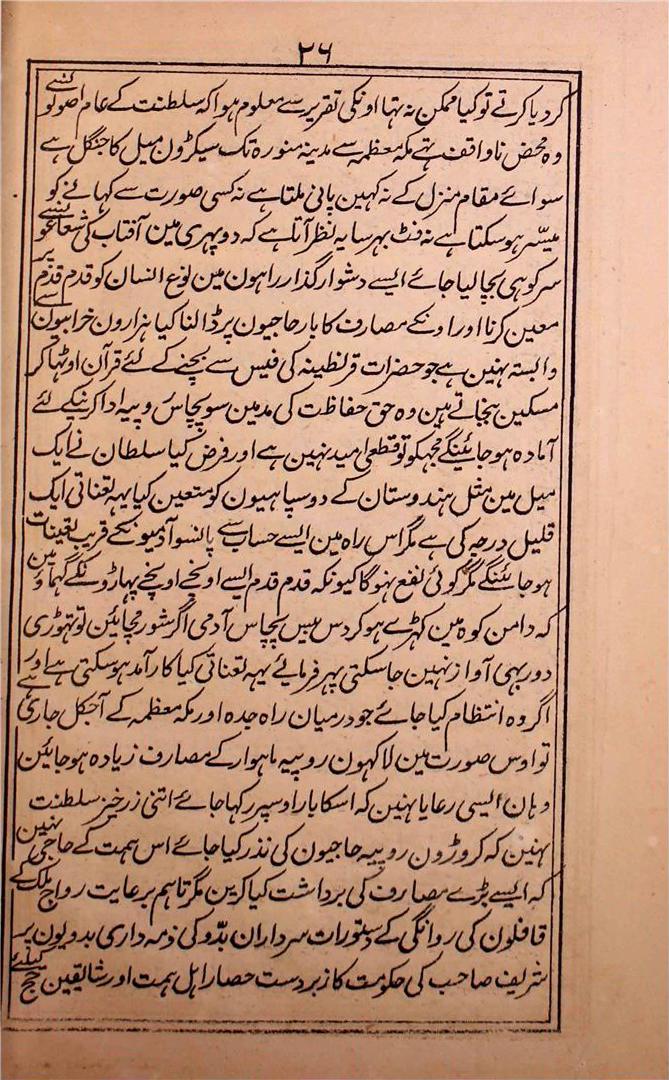 ۲۶
کر دیا کرتے تو کیا ممکن نہ تہا اونکی تقریر سے معلوم ہوا کہ سلطنت کے عام اصولونسے
وہ محض ناواقف تہے مکہ معظمہ سے مدینہ منورہ تک سیکڑون میل کا جنگل ہے
سوائے مقام منزل کے نہ کہین پانی ملتا ہے نہ کسی صورت سے کہانے کو
میسّر ہوسکتا ہے نہ فٹ بہر سایہ نظر آتا ہے کہ دوپہری مین آفتاب کی شعاعونسے
سر کو ہی بچا لیا جائے ایسے دشوار گذار راہون مین نوع انسان کو قدم قدم پر
معین کرنا اور اونکے مصارف کا بار حاجیون پر ڈالنا کیا ہزارون خرابیون سے
وابستہ نہین ہے جو حضرات قرنطینہ کی فیس سے بچنے کے لئے قرآن اوٹھا کر
مسکین بنجاتے ہین وہ حق حفاظت کی مد مین سو پچاس روپیہ ادا کرنیکے لئے
آمادہ ہو جائینگے مجہکو تو قطعی امید نہین ہے اور فرض کیا سلطان نے ایک
میل مین مثل ہندوستان کے دو سپاہیون کو متعین کیا یہہ تعناتی ایک
قلیل درجہ کی ہے مگر اس راہ مین ایسے حساب سے پانسو آدمیونکے قریب تعینات
ہو جائینگے مگر کوئی نفع نہوگا کیونکہ قدم قدم ایسے اونچے اونچے پہاڑونکے گہماؤ ہین
کہ دامن کوہ مین کہڑے ہو کر دس بیس پچاس آدمی اگر شور مچائین تو تہوڑی
دور بہی آواز نہین جا سکتی پہر فرمائے یہہ تعناتی کیا کارآمد ہو سکتی ہے اور
اگر وہ انتظام کیا جائے جو درمیان راہ جدہ اور مکہ معظمہ کے آجکل جاری ہے
تو اوس صورت مین لاکہون روپیہ ماہوار کے مصارف زیادہ ہو جائین
وہان ایسی رعایا نہین کہ اسکا بار اوسپر رکہا جائے اتنی زرخیز سلطنت
نہین کہ کروڑون روپیہ حاجیون کی نذر کیا جائے اس ہمت کے حاجی نہین
کہ ایسے بڑے مصارف کی برداشت کیا کرین مگر تاہم برعایت رواج ملک کے
قافلون کی روانگی کے دستورات سرداران بدّو کی ذمہ داری بدویون پر
شریف صاحب کی حکومت کا زبردست حصار اہل ہمت اور شایقین حج کیلئے